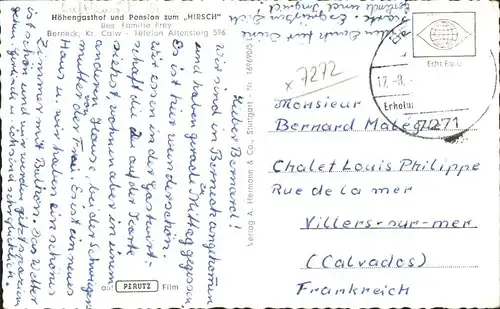 Höhengasthof und Pension zum „HIRSCH"
Bes. Familie Frey
Berneck, Kr. Calw - Telefon Altensteig 596
Lieber Bernard!
wir sind in Berneck angekommen
und haben gerade zu Mittag gegessen
Es ist hier wunderschön.
Wir essen in der Gastwirt-
schaft die du auf der Karte
siehst, wohnen aber in einem
anderen Hause, bei der Schwieger
mutter der Frei. Es ist ein neues
Haus u. wir haben ein schönes
Zimmer mit Balkon. Das Wetter
ist schön und wir werden jetzt spazieren
gehen.
Verlag A. Hermann & Co., Stuttgart - Nr.
auf PERUTZ Film
Echt Foto
17.-8.
Erholu
x 7272
Monsieur
Bernard
7271
Chalet Louis Philippe
Rue de la mer
Villers-sur-mer
(Calvados)
Frankreich